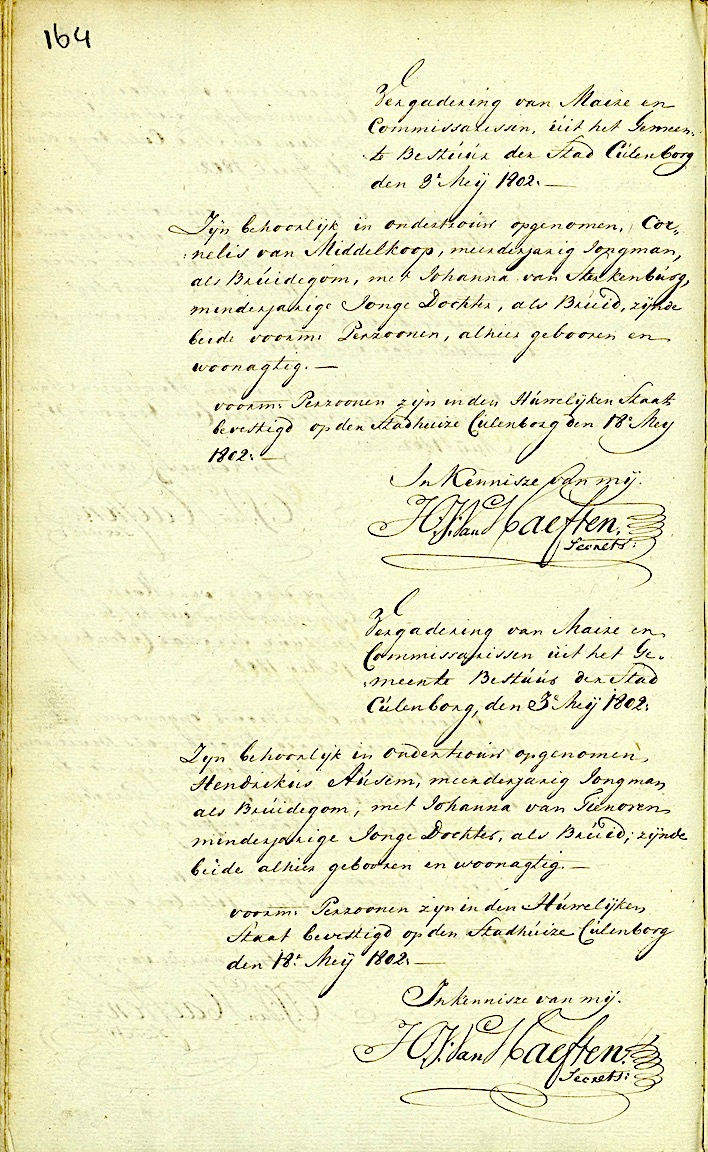 164
Vergadering van Maire en
Commissarissen, uit het Gemeen-
te Bestúúr der Stad Cúlenborg
den 3e Meij 1802. —
Zijn behoorlijk in ondertrouw opgenomen, Cor-
:nelis van Middelkoop, meerderjarig Jongman,
als Brúidegom, met Johanna van Sterkenbúrg,
minderjarige Jonge Dochter, als Brúid, zijnde
beide voorm: Perzoonen, alhier gebooren en
woonagtig. —
voorm: Perzoonen zijn in den Húwelijken Staat
bevestigd op den Stadhuize Cúlenborg den 18e Meij
1802. —
In Kennisze van mij.
H.J. van Haeften.
Secrets:
Vergadering van Maire en
Commissarissen úit het Ge-
:meente Bestúúr der Stad
Cúlenborg, den 3e Meij 1802.
Zyn behoorlyk in ondertrouw opgenomen,
Hendrikús Aúsem, meerderjarig Jongman,
als Brúidegom, met Johanna van
minderjarige Jonge Dochter, als Brúid, zijnde
beide alhier gebooren en woonagtig. —
voorm: Perzoonen zyn in den Húwelijken
Staat bevestigd op den Stadhúize Cúlenborg
den 18e Meij 1802. —
In kennisze van mij.
H.J. van Haeften.
Secrets: